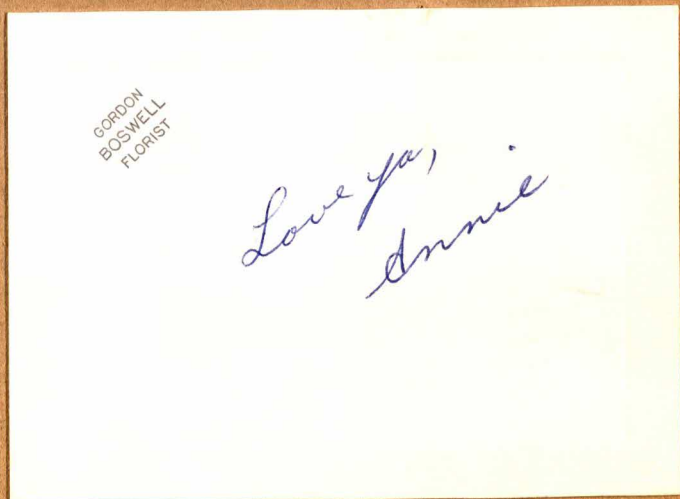 GORDON
BOSWELL
FLORIST
Love ya,
Annie